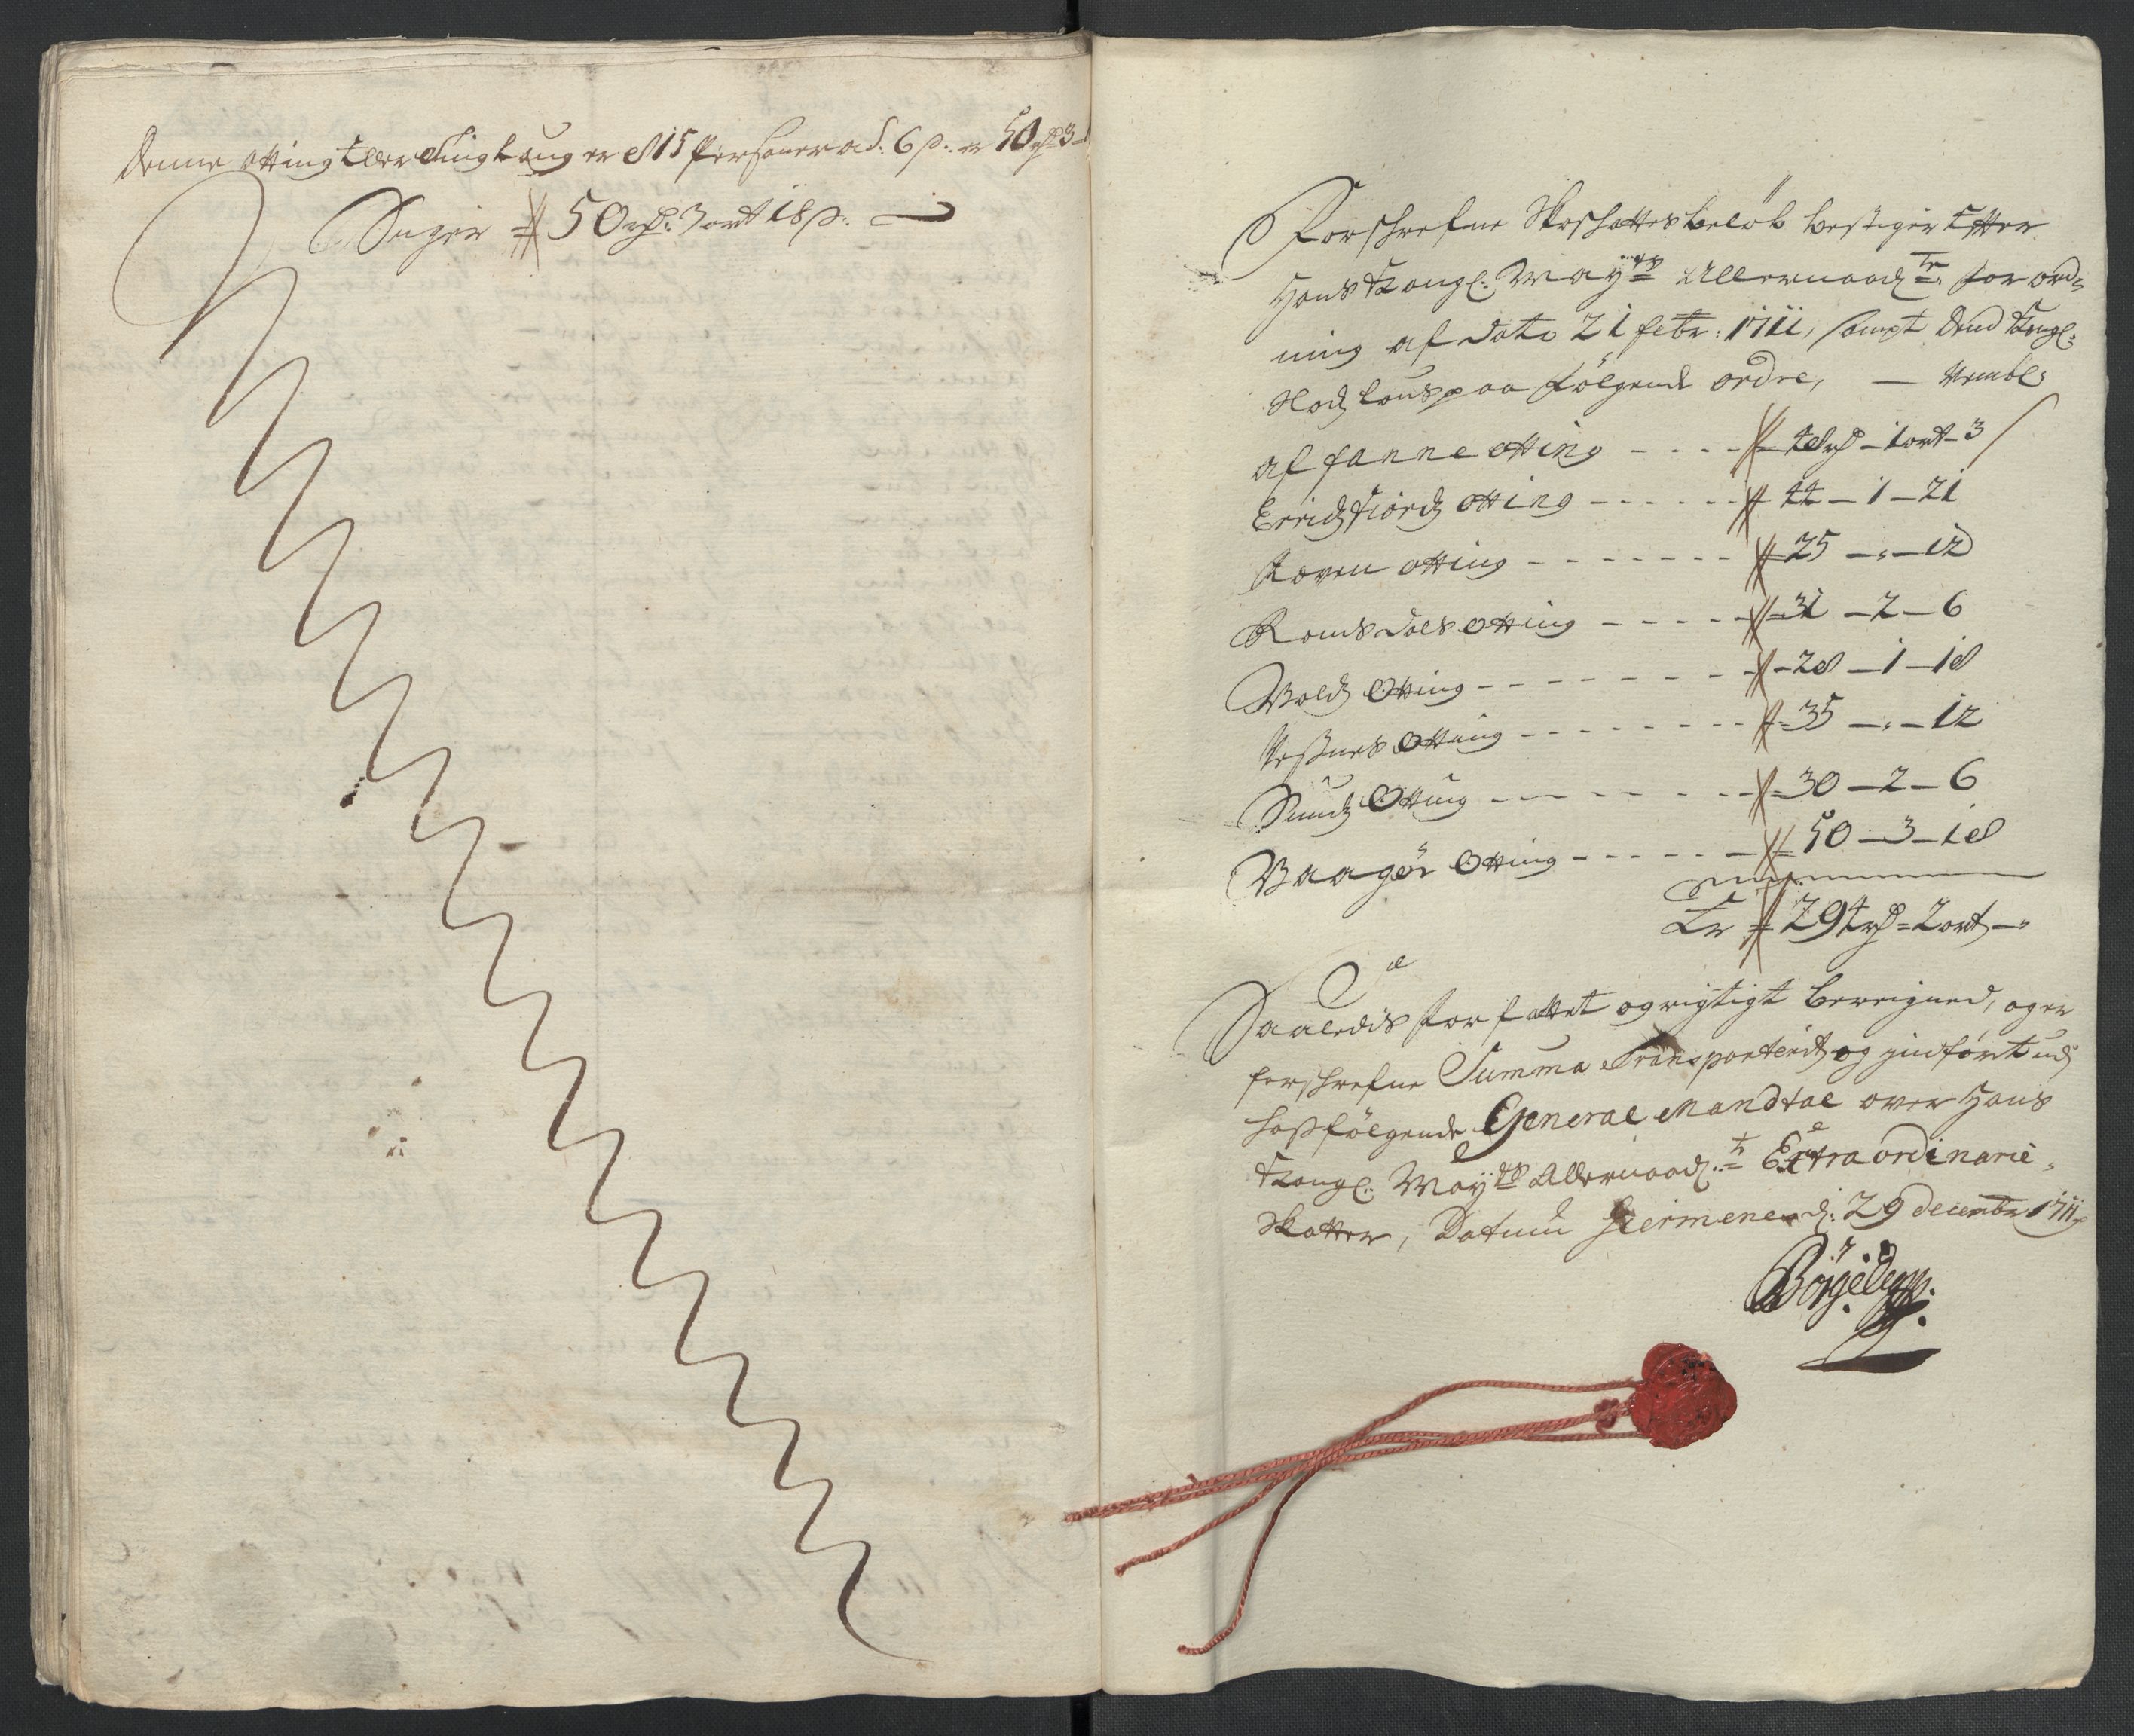 Denne otting eller Tinglaug er 815 Personer a d. 6 s: er 50 rd 3
Siger 50 rd: 3 ort 18 s:
Forschrefne Skoeschattes beløb bestiger efter
Hans Kongl: May:ts Allernaad:te forord-
ning af dato 21 febr: 1711, sampt dend Kongl:
Slodz Lous paa følgende ordre, — Nembl:
af fanne otting - - - - 48 rd – 1 ort – 3
Eridzfiordz otting - - - - - - 44 – 1 – 21
Røven otting - - - - - - - 25 – „ – 12
Romsdals otting - - - - - 31 – 2 – 6
Wold Otting - - - - - - - - 28 – 1 – 18
Nesnes Otting - - - - - - - 35 – „ – 12
Sund Otting - - - - - - - 30 – 2 – 6
Waagøe Otting - - - - - - 50 – 3 – 18
Er 294 rd = 2 ort – „
Saaledis forfattet og rigtigt bereigned, og er
forschrefne Summa Transporterit og indført udj
hosfølgende General Mandtal over Hans
Kongl: May:ts Allernaad:te Extraordinarie
Skatter, Datum d: 29 decembr 1711